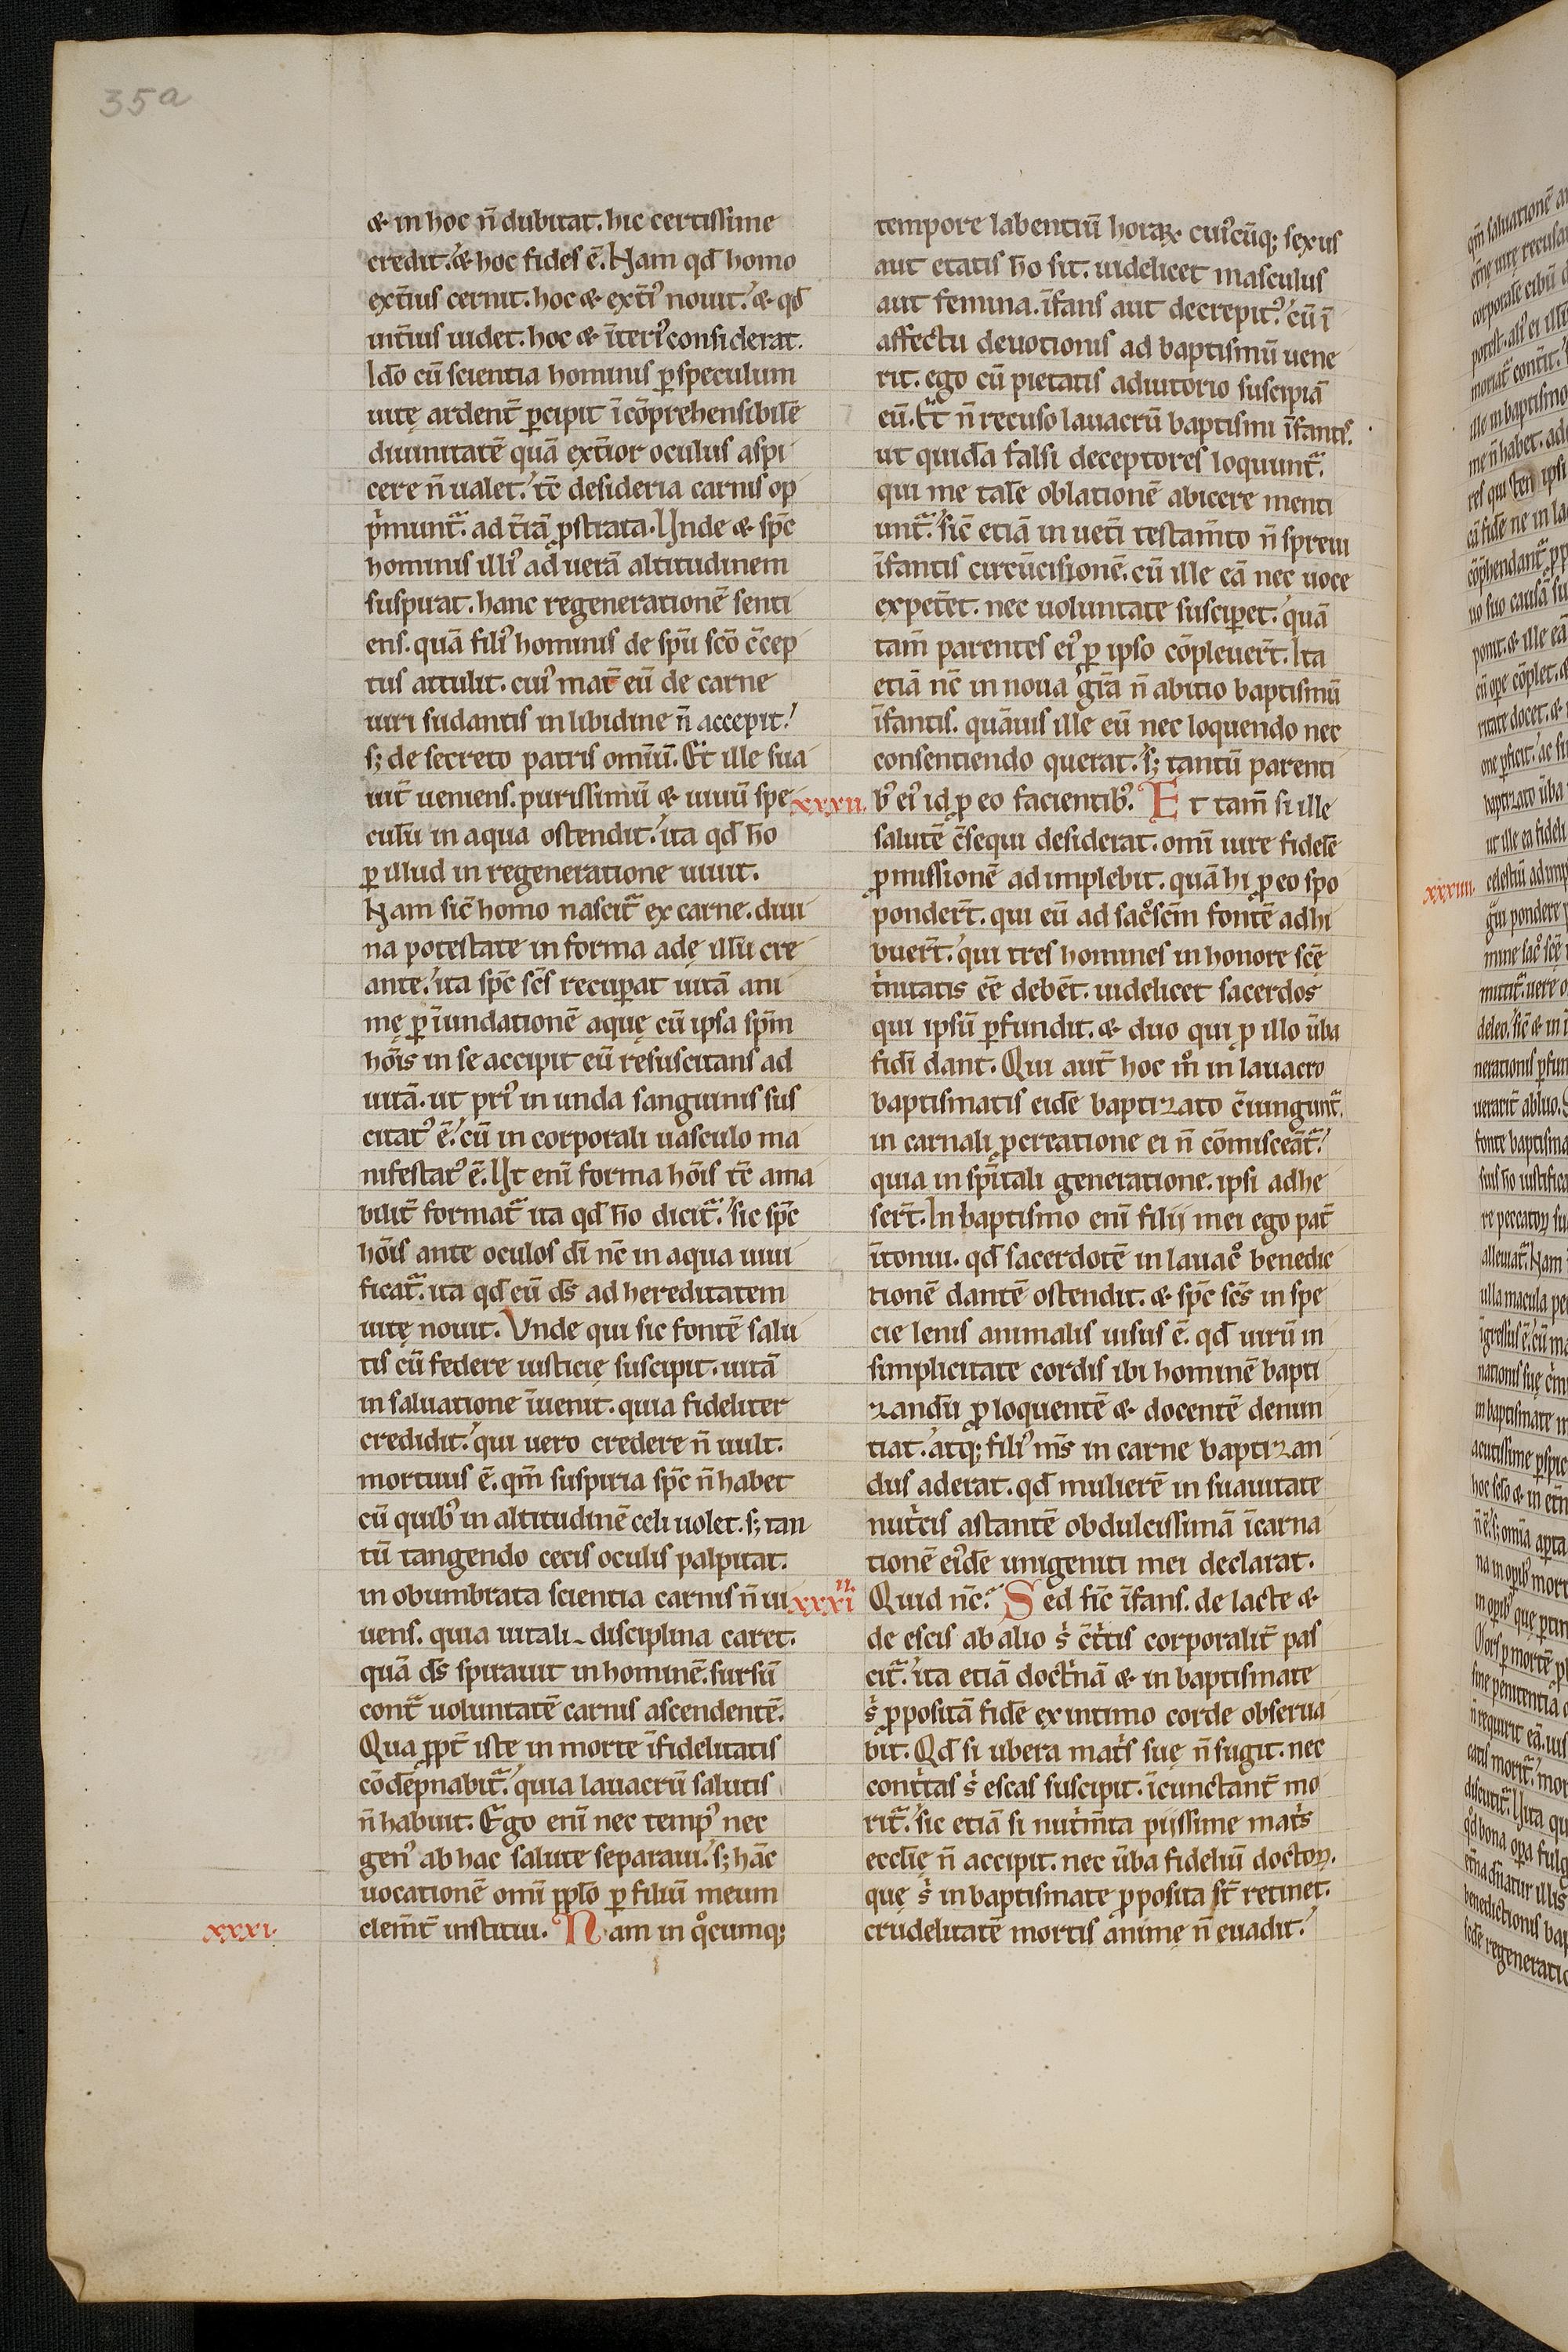 35a
& in hoc n̄ dubitat. hic certissime
credit.' & hoc fides ē. Nam qđ homo
ext̄ius cernit. hoc & ext̄i᾽ nouit.' & qđ
int̄ius uidet. hoc & īteri᾽ considerat.
Iđo cū scientia hominis ꝑ speculum
uitę ardent̄ ꝑcipit īcōprehensibilē
diuinitatē quā ext̄ior oculus aspi
cere n̄ ualet.' tc̄ desideria carnis op
p̍munt᷑. ad t̄rā ꝓstrata. Unde & sp̄c
hominis illi᾽ ad uerā altitudinem
suspirat. hanc regenerationē senti
ens. quā fili᾽ hominis de sp̄u sc̄o c̄cep
tus attulit. cui᾽ mat̄ eū de carne
uiri sudantis in libidine n̄ accepit.'
s; de secreto patris om̄iū. Et ille sua
uit̄ ueniens. purissimū & uiuū spe
culū in aqua ostendit.' ita qđ h̄o
ꝑ illud in regeneratione uiuit.
Nam sic̄ homo nascit᷑ ex carne. diui
na potestate in forma adę illū cre
ante.' ita sp̄c sc̄s recuꝑat uitā ani
mę ꝑ īundationē aquę cū ipsa sp̄m
hōis in se accipit eū resuscitans ad
uitā. ut pri᾽ in unda sanguinis sus
citat᾽ ē.' cū in corporali uasculo ma
nifestat᾽ ē. Ut eni̅ forma hōis tc̄ ama
bilit̄ format᷑ ita qđ h̄o dicit᷑.' sic sp̄c
hōis ante oculos di̅ nc̄ in aqua uiui
ficat᷑. ita qđ eū ds̄ ad hereditatem
uitę nouit. Vnde qui sic fontē salu
tis cū federe iusticię suscipit. uitā
in saluatione īuenit. quia fideliter
credidit.' qui uero credere n̄ uult.
mortuus ē. qm̄ suspiria sp̄c n̄ habet
cū quib᾽ in altitudinē celi uolet. s; tan
tū tangendo cecis oculis palpitat.
in obumbrata scientia carnis n̄ ui
uens. quia uitali disciplina caret.
quā ds̄ spirauit in hominē. sursū
cont᷑ uoluntatē carnis ascendentē.
Qua ꝓpt̄ iste in morte īfidelitatis
cōdēpnabit᷑.' quia lauacrū salutis
n̄ habuit. Ego eni̅ nec temp᾽ nec
gen᾽ ab hac salute separaui.' s; hāc
uocationē omi̅ pp̄lo ꝑ filiū meum
clem̄t̄ institui. Nam in qͦcumq;
xxxi.
tempore labentiū horaꝝ cui᾽cūq; sexus
aut etatis h̄o sit. uidelicet masculus
aut femina. īfans aut decrepit᾽.' cū ī
affectu deuotionis ad baptismū uene
rit. ego cū pietatis adiutorio suscipiā
eū. Et n̄ recuso lauacrū baptismi īfantis.
ut quidā falsi deceptores loquunt᷑.
qui me talē oblationē abicere menti
unt᷑.' sic̄ etiā in uet̄i testam̄to n̄ spreui
īfantis circūcisionē. cū ille eā nec uoce
expet̄et. nec uoluntate susciꝑet.' quā
tam̄ parentes ei᾽ ꝑ ipso cōpleuer̄t. Ita
etiā nc̄ in noua gr̄a n̄ abitio baptismū
īfantis. quāuis ille eū nec loquendo nec
consentiendo querat.' s; tantū parenti
xxxii.
b᾽ ei᾽ id ꝓ eo facientib᾽. Et tam̄ si ille
salutē c̄sequi desiderat. omi̅ iure fidelē
ꝓmissionē adimplebit. quā hi ꝓ eo spo
ponder̄t. qui eū ad sac͛sc̄m fontē adhi
buer̄t.' qui tres homines in honore sc̄ę
t̍nitatis ēe debēt. uidelicet sacerdos
qui ipsū ꝑfundit. & duo qui ꝓ illo ūba
fidi̅ dant. Qui aut̄ hoc mͦ in lauacro
baptismatis eidē baptizato c̄iungunt᷑.
in carnali ꝓcreatione ei n̄ cōmisceāt᷑.'
quia in sp̄itali generatione. ipsi adhe
ser̄t. In baptismo eni̅ filii mei ego pat̄
ītonui. qđ sacerdotē in lauacͦ benedic
tionē dantē ostendit. & sp̄c sc̄s in spe
cie lenis animalis uisus ē. qđ uirū in
simplicitate cordis ibi hominē bapti
zandū ꝓloquentē & docentē denun
tiat.' atq; fili᾽ ms̄ in carne baptizan
dus aderat. qđ mulierē in suauitate
nut̍cis astantē ob dulcissimā īcarna
tionē ei᾽dē unigeniti mei declarat.
xxxiii
Quid nc̄.' Sed sic̄ īfans. de lacte &
de escis ab alio s̍ c̄t̍tis corporalit̄ pas
cit᷑.' ita etiā doct̍nā & in baptismate
s̍ ꝓpositā fidē ex intimo corde obserua
bit. Qđ si ubera mat̍s suę n̄ sugit. nec
cont̍tas s̍ escas suscipit. īcunctant̄ mo
rit᷑.' sic etiā si nut̍m̄ta piissime mat̍s
eccl̄ię n̄ accipit. nec ūba fideliū doctoꝝ.
que s̍ in baptismate ꝓposita st̄ retinet.
crudelitatē mortis animę n̄ euadit.'
xxxiiii.